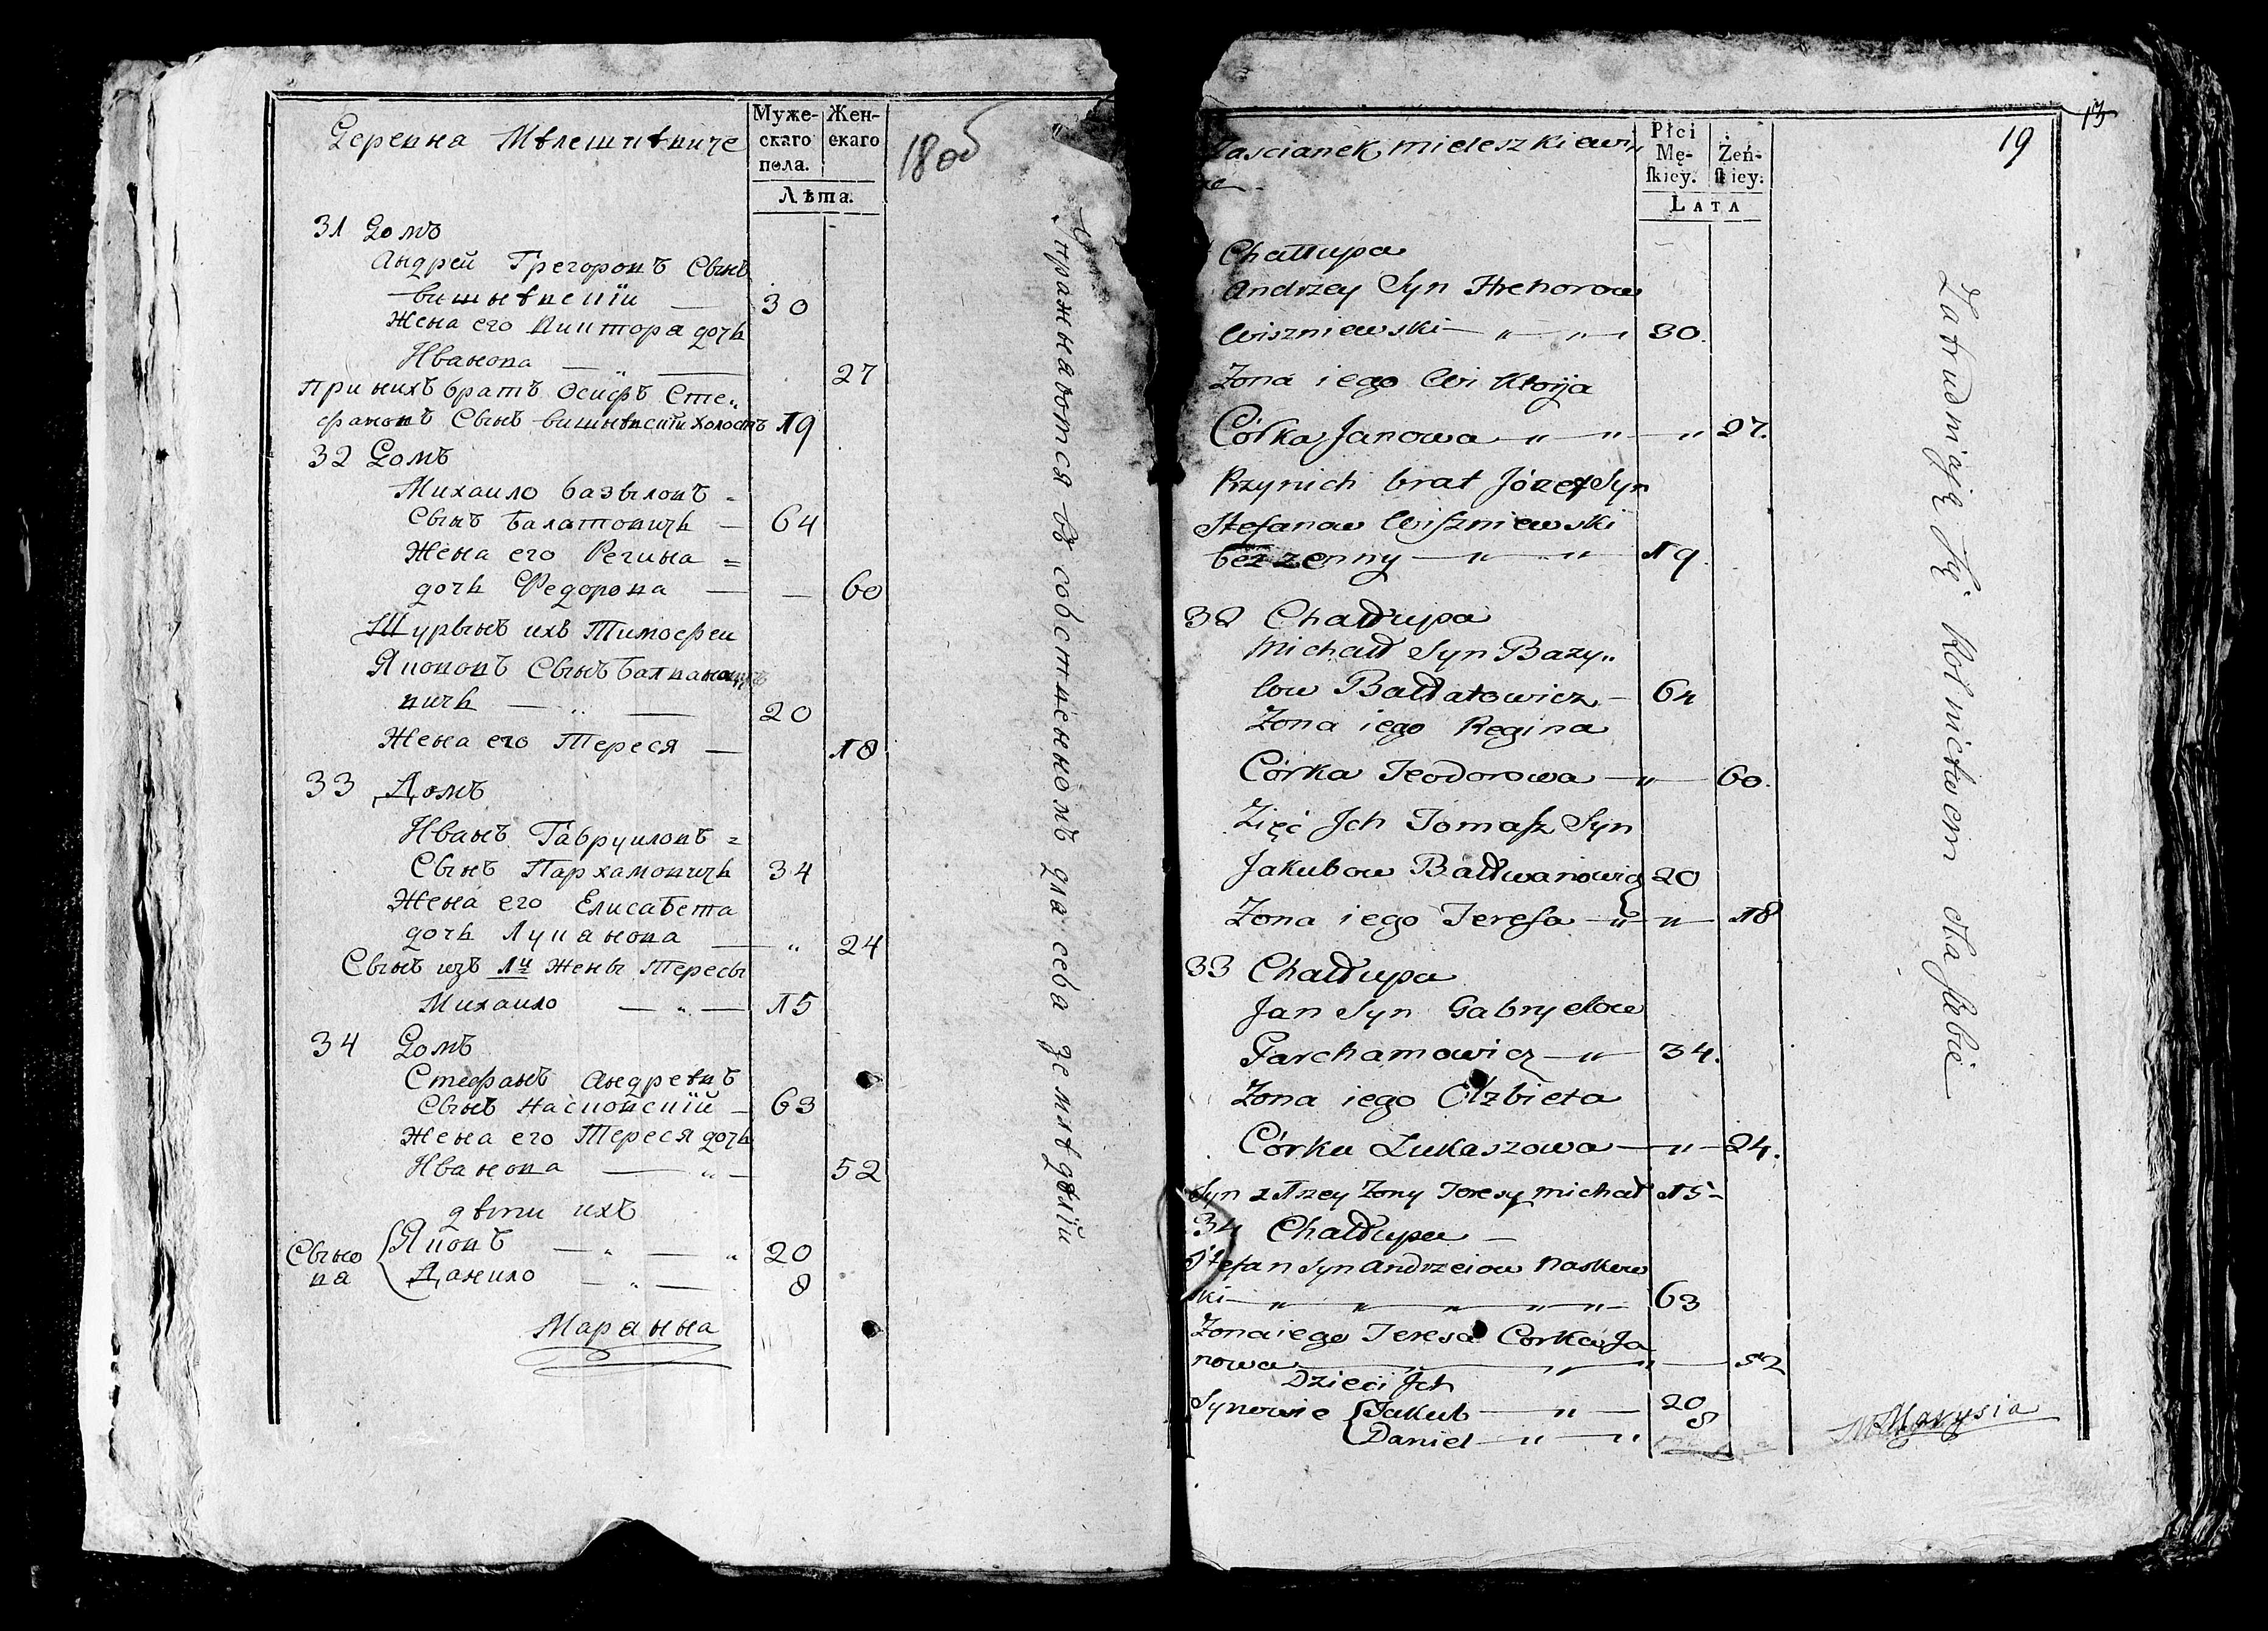 Деревня Мѣлешкѣвиче
Муже-
скаго
пола.
Жен-
скаго
Лѣта.
18 об
31 Домъ
Андрей Грегоровъ Сынъ
вишнѣвскій — 30
Жена его Виктора дочь
Иванова — „ — 27
при нихъ братъ Осифъ Сте„
фановъ Сынъ вишнѣвскій холостъ 19
32 Домъ
Михаило базыловъ =
Сынъ балатовичъ — 64
Жена его Регина =
дочь Федорова — — 60
Шурынъ ихъ Тимофеи
Яковъ Сынъ
вичъ — „ — 20
Жена его Тереся — 18
33 Домъ
Иванъ Гавруиловъ =
Сынъ Пархамовичъ 34
Жена его Елисавета
дочь Луканова — „ 24
Сынъ изъ 1й Жены Тересы
Михаило — „ — 15
34 Домъ
Стефанъ Андрѣвъ
Сынъ насковскій — 63
Жена его Тереся дочь
Иванова — „ — 52
дѣти ихъ
Сыно
ва
Яковъ — „ — „ 20
Данило — „ — 8
Марянна
Упражняются въ собственномъ для себя земледѣліи
Zascianek mieleszkiewi
cze
Płci
Mę-
skiey.
Żeń-
skiey.
LATA
19
13
Chałłupa
Andrzey Syn Hrehorow
Wiszniewski — „ — „ — 30.
Zona iego Wiktoryja
Córka Janowa — „ — „ — „ 27.
Przynich brat Józef Syn
Stefanow Wiszniewski
bezzenny — „ — „ — 19.
32 Chałłupa
Michałł Syn Bazy„
low Bałłatowicz — 64
Zona iego Regina
Córka Teodorowa — „ — 60.
Zięć Jch Tomasz Syn
Jakubow Bałłwanowicz 20
Zona iego Teresa — „ — „ — 18
33 Chałłupa
Jan Syn Gabryelow
Parchamowicz — „ — 34.
Zona iego Elzbieta
Córka Łukaszowa — „ — 24.
Syn z 1szey Zony Teresy Michał 15 —
34 Chałłupa —
Stefan Syn Andrzeiow Naskow
ski — „ „ „ „ „ — 63
Zona iego Teresa Corka Ja
nowa — „ „ — 52
Dzieci Jch
Synowie
Jakub — „ — 20
Daniel — „ — „ 8
Zatrudniaią Się Rolnictwem dla siebie
Marysia